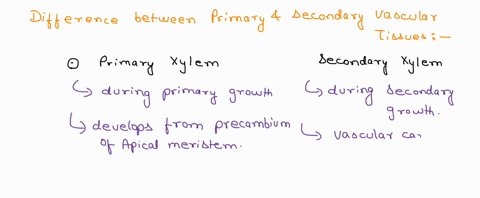 Difference between Primary & Secondary Vascular
Tissues:-
⊙ Primary Xylem
Secondary Xylem
↳ during primary growth
↳ during secondary
growth.
↳ develops from precambium
of Apical meristem.
↳ vascular ca